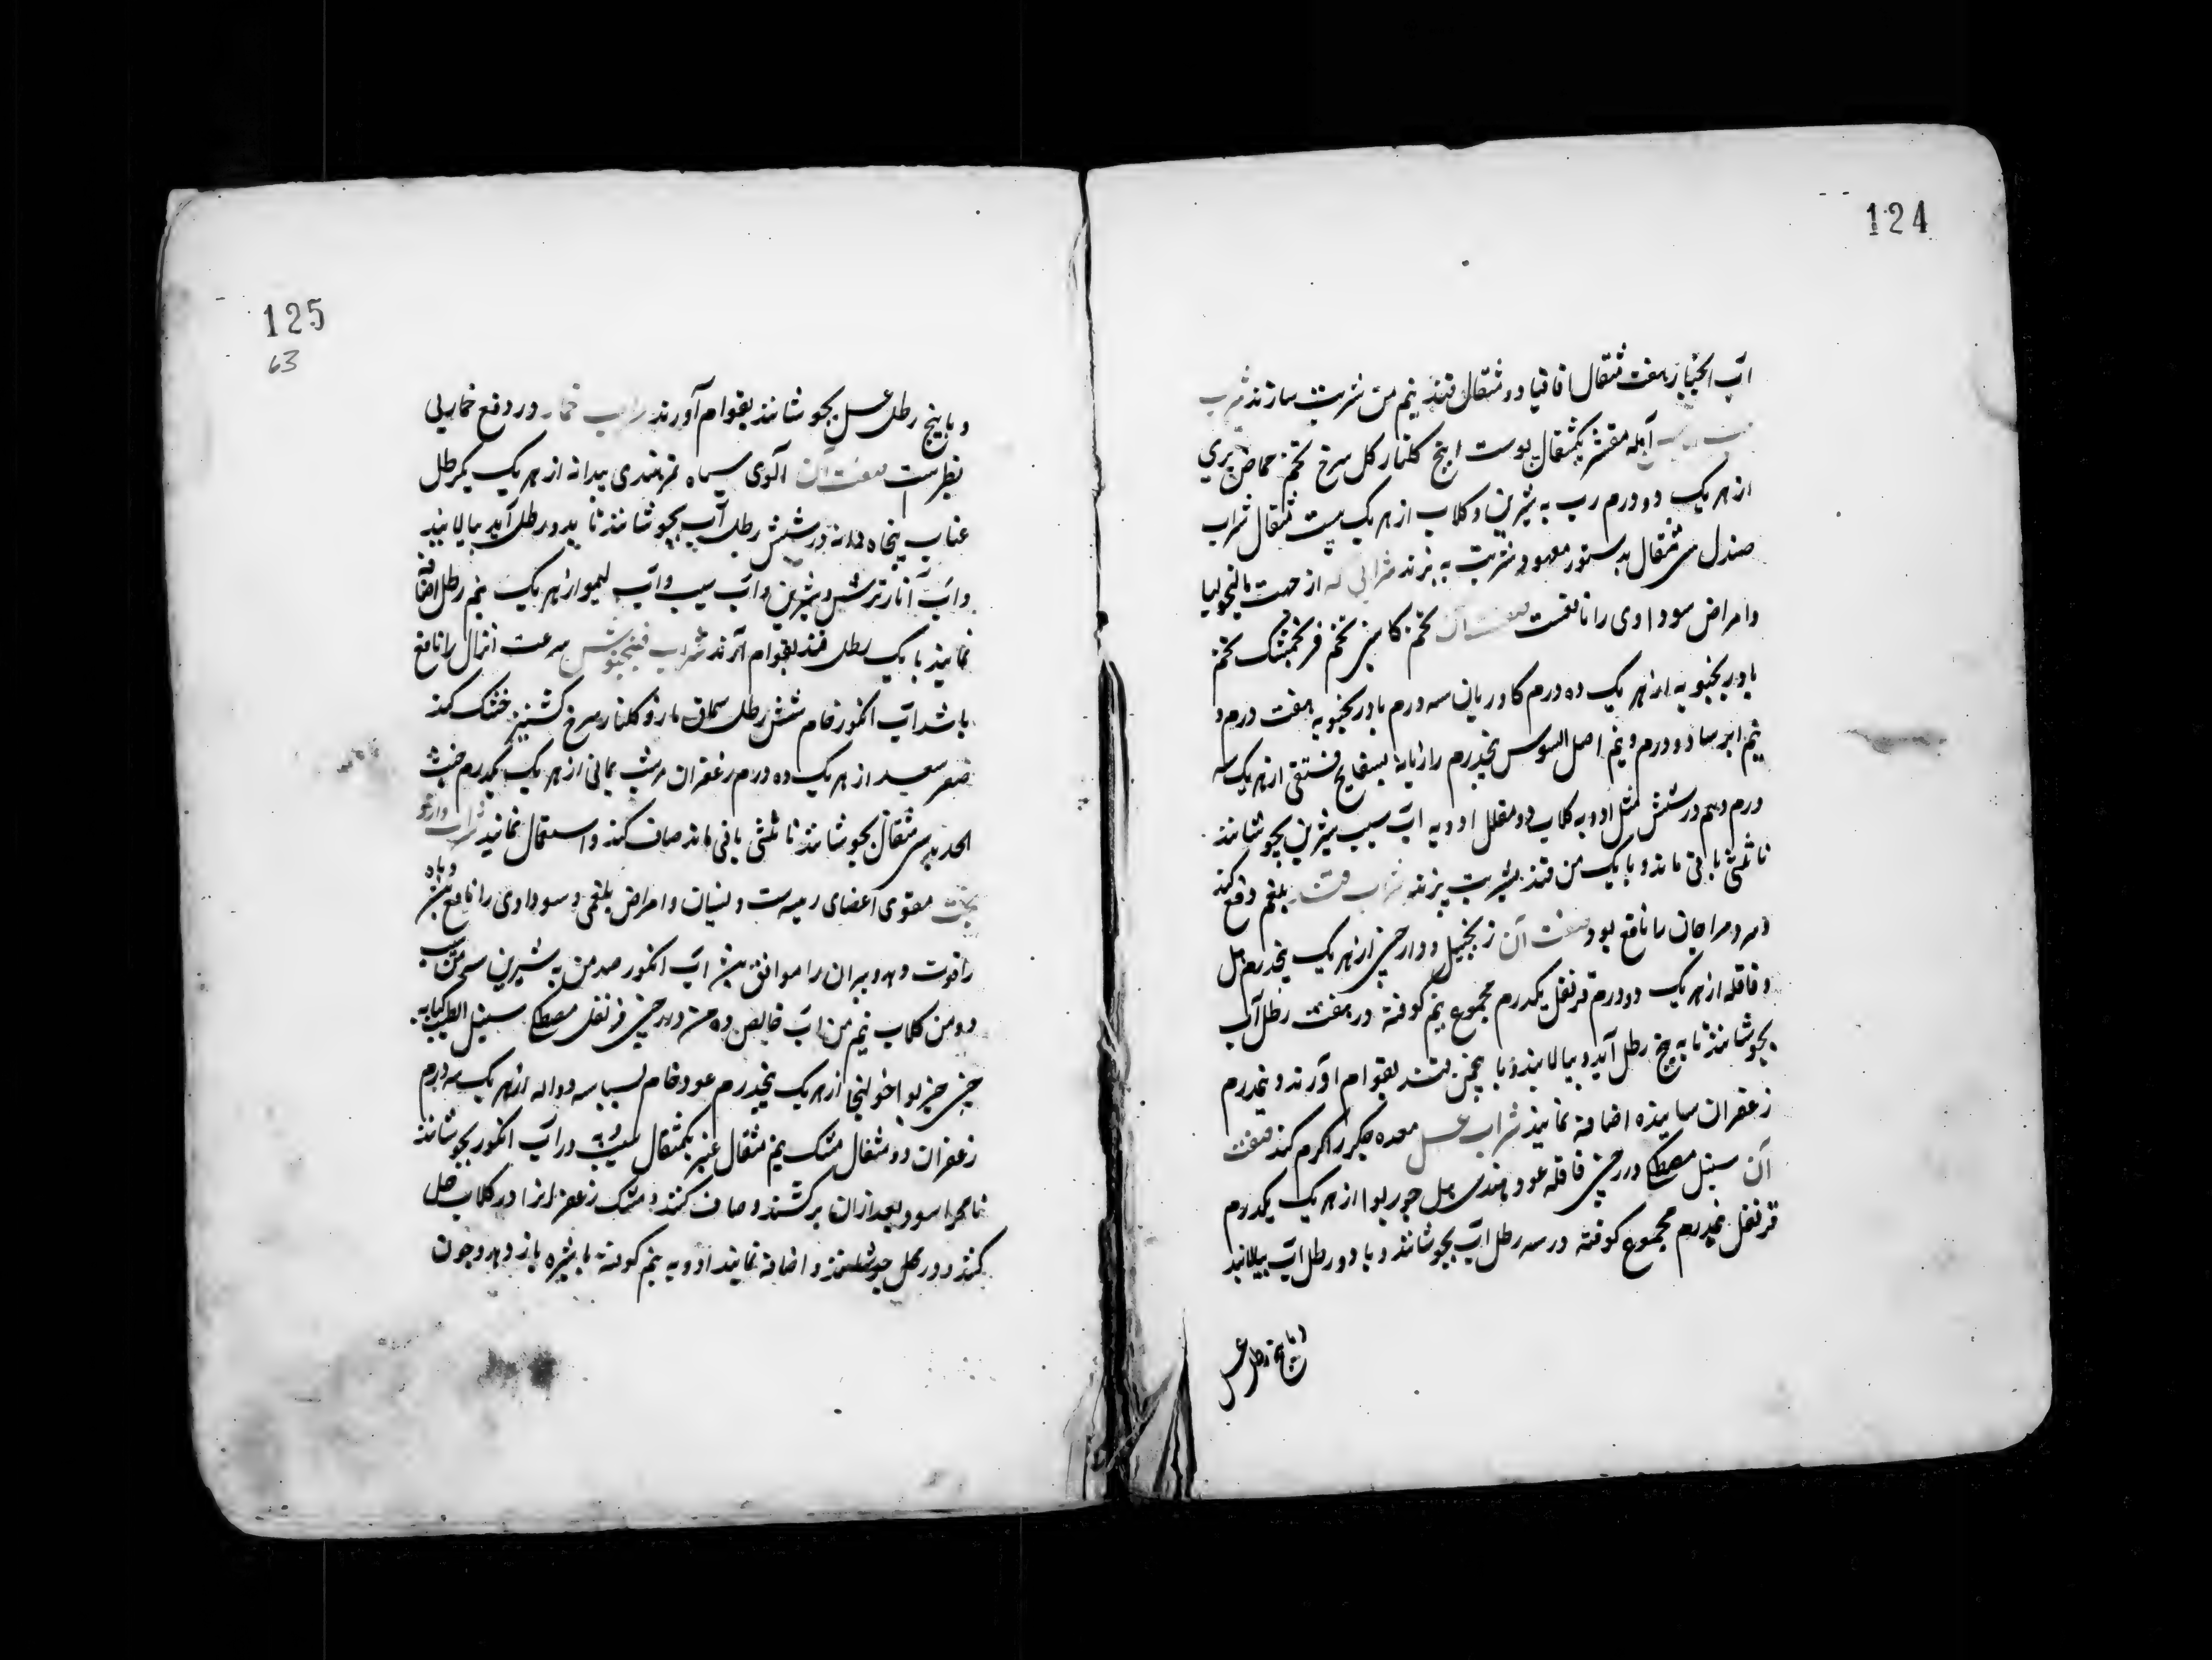 124
اب الخیار هفت مثقال اقاقیا دو مثقال قند نیم من شربت سازند شراب
آمله مقشر یکمثقال پوست اترج گلنار گل سرخ تخم حماض بری
از هریک دو درم رب به شیرین و گلاب از هریک بیست مثقال شراب
صندل سی مثقال بدستور معهود شربت به پزند شرابی که از جهت مالیخولیا
وامراض سوداوی را نافعست صفت آن تخم کاسنی تخم فرنجمشک تخم
بادرنجبویه از هریک ده درم کاوزبان سه درم بادرنجبویه هفت درم و
نیم ایرسا دو درم و نیم اصل السوس پنجدرم رازیانه بسفایج فستقی از هریک سه
درم و نیم در شش مثل ادویه گلاب و دو مقابل ادویه اب سیب شیرین بجوشانند
تا ثلثی باقی ماند و با یک من قند بشربت پزند شراب قند بلغم دفع کند
و سرد مزاجان را نافع بود صفت آن زنجبیل و دارچینی از هریک پنجدرم هل
و قاقله از هریک دو درم قرنفل یکدرم مجموع نیم کوفته در هفت رطل آب
بجوشانند تا به پنج رطل آید و بپالایند و با پنجمن قند بقوام آورند و نیمدرم
زعفران ساییده اضافه نمایند شراب عسل معده و جگر را گرم کند صفت
آن سنبل مصطکی دارچینی قاقله عود هندی هل جوزبوا از هریک یکدرم
قرنفل نیمدرم مجموع کوفته در سه رطل اب بجوشانند و با دو رطل اب بپالایند
125
63
و با پنج رطل عسل بجوشانند بقوام آورند شراب خمار در دفع خمار بی
نظرست صفت آن الوی سیاه تمرهندی بیدانه از هریک یکرطل
عناب پنجاه دانه در شش رطل آب بجوشانند تا بدو رطل آید بپالایند
و اب انار ترش و شیرین و اب سیب و اب لیمو از هریک نیم رطل اضافه
نمایند با یک رطل قند بقوام آرند شراب فنجنوش سرعت انزال را نافع
باشد اب انگور خام شش رطل سماق مازو گلنار سرخ گشنیز خشک کند
صعتر سعد از هریک ده درم زعفران شب یمانی از هریک یکدرم خبث
الحدید سی مثقال بجوشانند تا ثلثی باقی ماند صاف کنند و استعمال نمایند شراب
مقوی اعضای رییسه است و نسیان و امراض بلغمی و سوداوی را نافع بود و باه
را قوت دهد و پیران را موافق بود اب انگور صد من به شیرین سی من سیب
دو من گلاب نیم من اب خالص ده من دارچینی قرنفل مصطکی سنبل الطیب کبابه
چینی جزبوا خولنجان از هریک پنجدرم عود خام بسباسه دواله از هریک سه درم
زعفران دو مثقال مشک نیم مثقال عنبر یکمثقال سیب و به در اب انگور بجوشانند
تا مهرا شود بعد ازان برکشند و صاف کنند و مشک زعفران را در گلاب حل
کنند و در محل جوشانیدن اضافه نمایند ادویه نیم کوفته با شیره باز دهد و چون